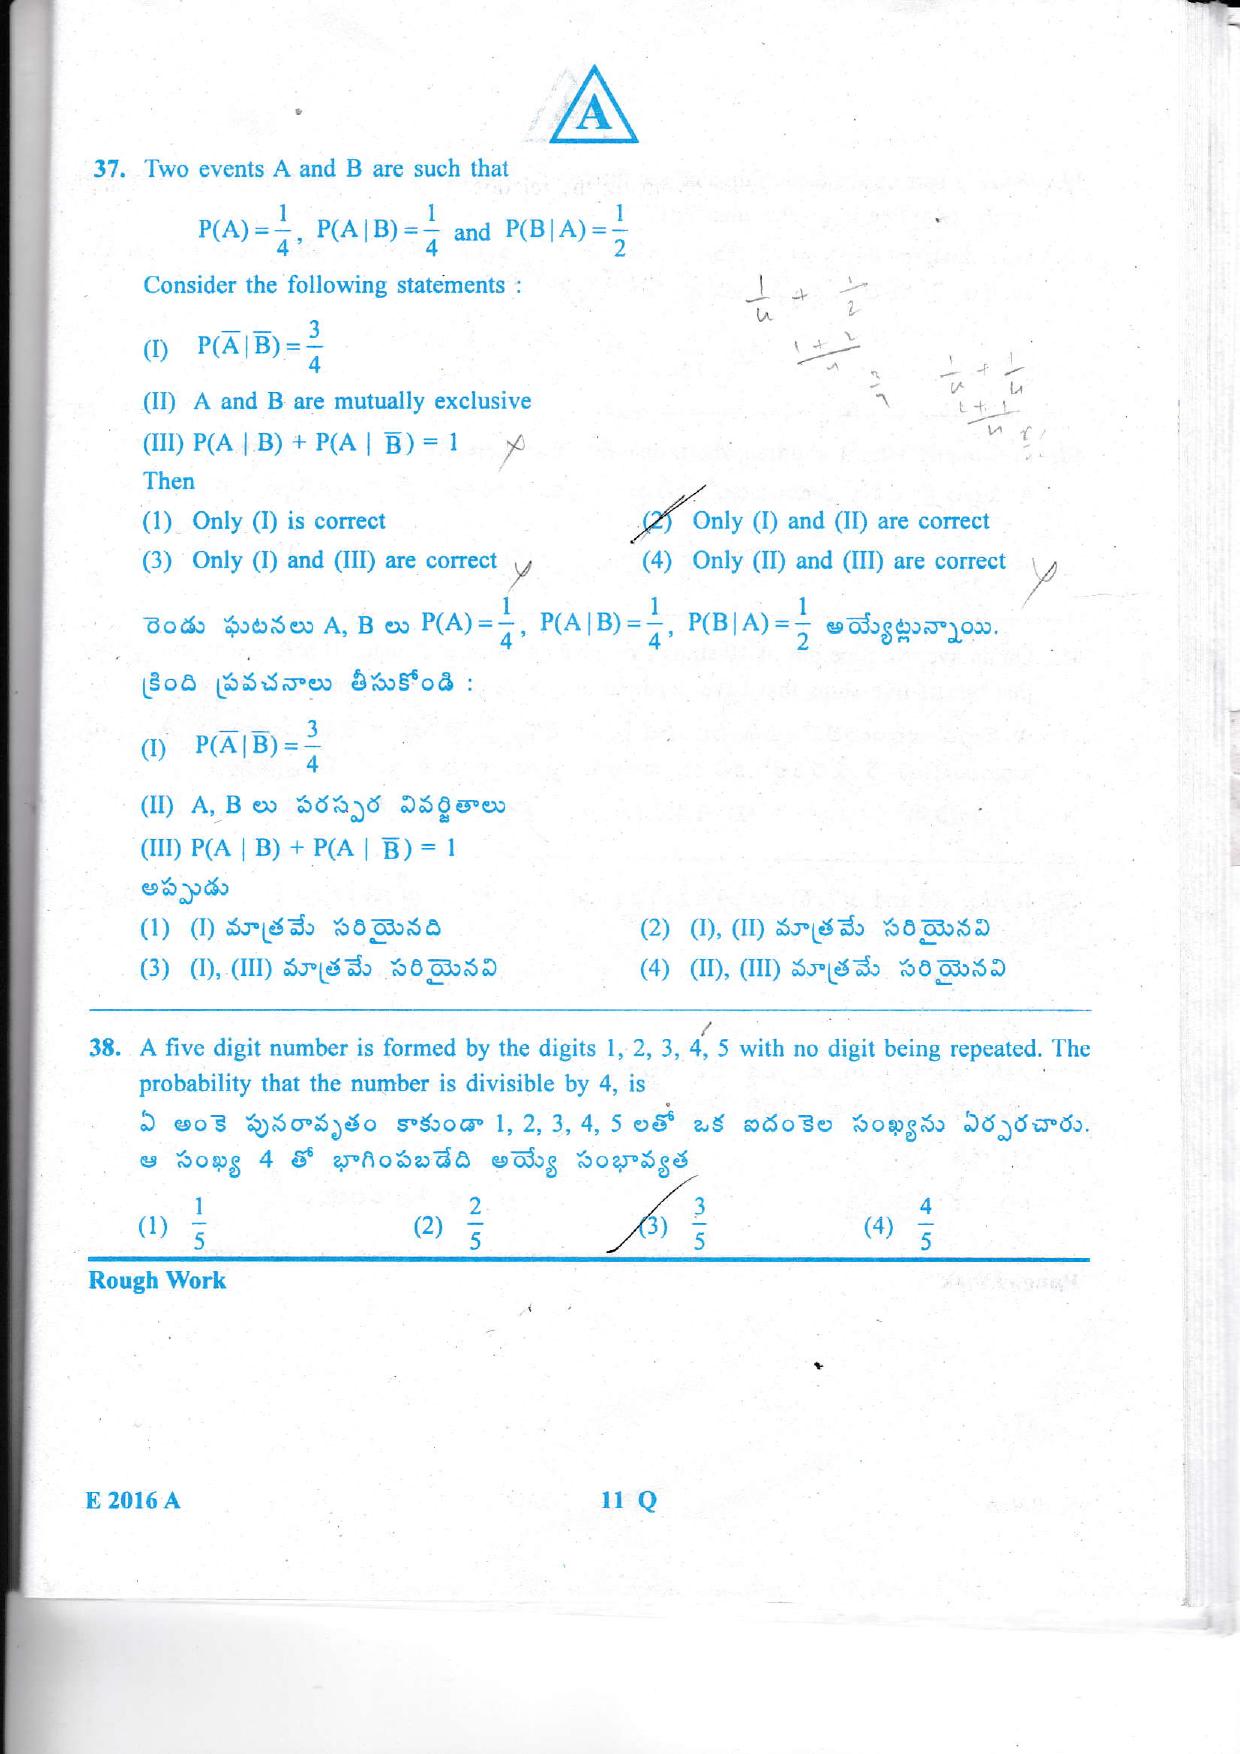 A
37. Two events A and B are such that
P(A) = 1/4, P(A|B) = 1/4 and P(B|A) = 1/2
Consider the following statements :
(I) P(A̅|B̅) = 3/4
(II) A and B are mutually exclusive
(III) P(A | B) + P(A | B̅) = 1
Then
(1) Only (I) is correct (2) Only (I) and (II) are correct
(3) Only (I) and (III) are correct (4) Only (II) and (III) are correct
రెండు ఘటనలు A, B లు P(A) = 1/4, P(A|B) = 1/4, P(B|A) = 1/2 అయ్యేట్లున్నాయి.
క్రింది ప్రవచనాలు తీసుకోండి :
(I) P(A̅|B̅) = 3/4
(II) A, B లు పరస్పర వివర్జితాలు
(III) P(A | B) + P(A | B̅) = 1
అప్పుడు
(1) (I) మాత్రమే సరియైనది (2) (I), (II) మాత్రమే సరియైనవి
(3) (I), (III) మాత్రమే సరియైనవి (4) (II), (III) మాత్రమే సరియైనవి
38. A five digit number is formed by the digits 1, 2, 3, 4, 5 with no digit being repeated. The
probability that the number is divisible by 4, is
ఏ అంకె పునరావృతం కాకుండా 1, 2, 3, 4, 5 లతో ఒక ఐదంకెల సంఖ్యను ఏర్పరచారు.
ఆ సంఖ్య 4 తో భాగింపబడేది అయ్యే సంభావ్యత
(1) 1/5 (2) 2/5 (3) 3/5 (4) 4/5
Rough Work
E 2016 A 11 Q